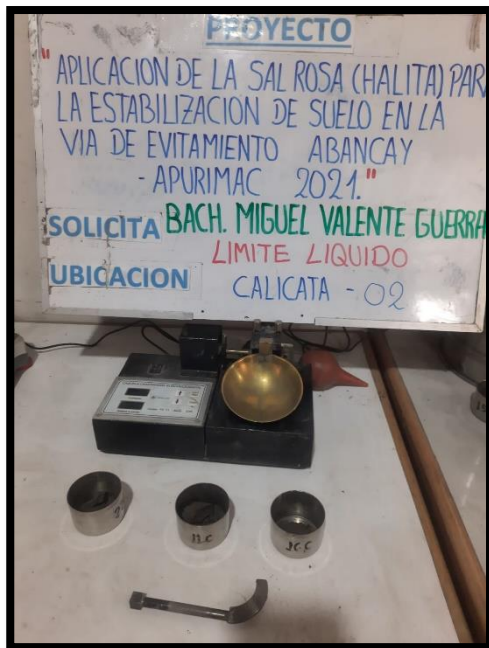 PROYECTO
"APLICACION DE LA SAL ROSA (HALITA) PARA
LA ESTABILIZACION DE SUELO EN LA
VIA DE EVITAMIENTO ABANCAY
- APURIMAC 2021."
SOLICITA BACH. MIGUEL VALENTE GUERRA
LIMITE LIQUIDO
UBICACION CALICATA - 02